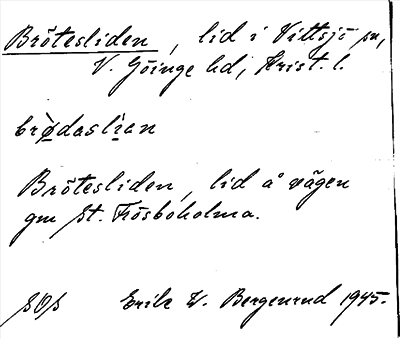 Brötesliden, lid i Vittsjö sn,
V. Göinge hd, Krist. l.
brødaslian
Brötesliden, lid å vägen
gm St. Frösboholma.
SOS Erik W. Bergenrud 1945.